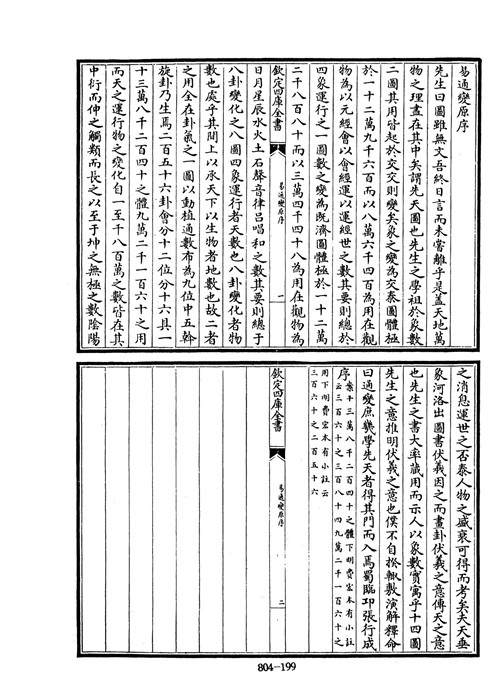 易通變原序
先生曰圖雖無文吾終日言而未嘗離乎是蓋天地萬
物之理盡在其中矣謂先天圖也先生之學祖於象數
二圖其用皆起於交交則變矣象之變為交泰圖體極
於一十二萬九千六百而以八萬六千四百為用在觀
物為以元經會以會經運以運經世之數其要則總於
四象運行之一圖數之變為既濟圖體極於一十二萬
二千八百八十而以三萬四千四十八為用在觀物為
欽定四庫全書
易通變原序
一
日月星辰水火土石聲音律呂唱和之數其要則總于
八卦變化之八圖四象運行者天數也八卦變化者物
數也處乎其間上以承天下以生物者地數也故二者
之用全在卦氣之一圖以動植通數布為九位中五斡
旋卦乃生焉二百五十六卦會分十二位分十六具一
十三萬八千二百四十之體九萬二千一百六十之用
而天之運行物之變化自一至千八百萬之數皆在其
中衍而伸之觸類而長之以至于坤之無極之數陰陽
之消息運世之否泰人物之盛衰可得而考矣夫天垂
象河洛出圖書伏羲因之而畫卦伏羲之意傳天之意
也先生之書大率藏用而示人以象數實寓乎十四圖
先生之意推明伏羲之意也僕不自揆輒敷演解釋命
曰通變庶幾學先天者得其門而入焉蜀臨卭張行成
序案十三萬八千二百四十之體下明費宏本有小註
云三百六十之三百八十四九萬二千一百六十之
用下明費宏本有小註云
三百六十之二百五十六
欽定四庫全書
易通變原序
二
804-199